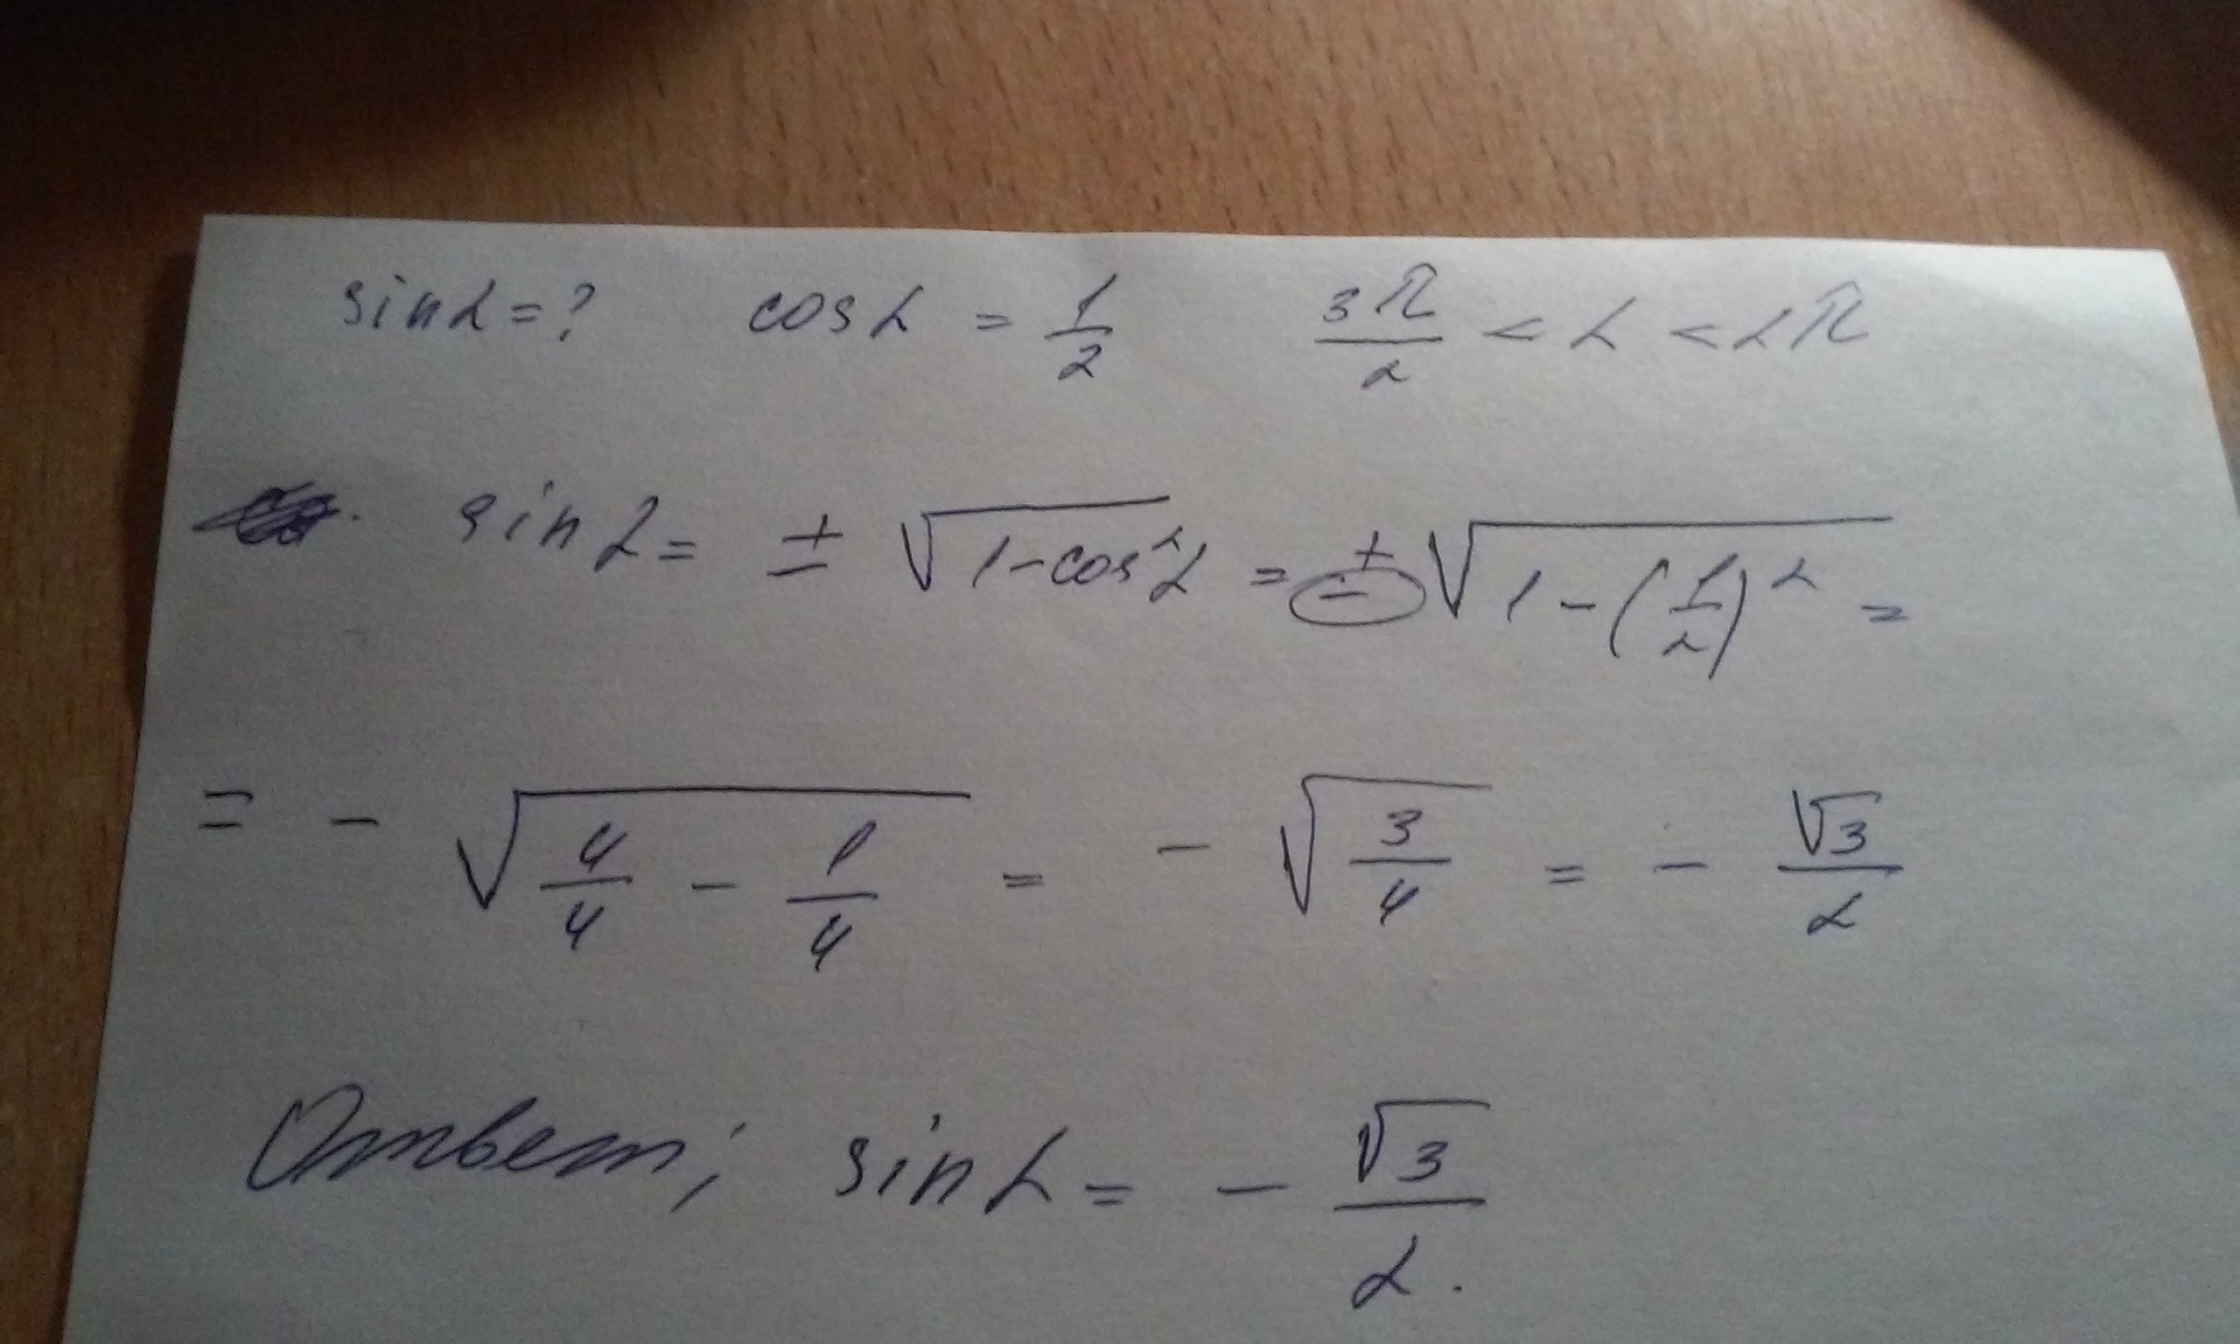 sin α = ? cos α = 1/2 3π/2 < α < 2π
sin α = ± √(1 - cos² α) = ± √(1 - (1/2)²) =
= - √(4/4 - 1/4) = - √(3/4) = - √3/2
Ответ; sin α = - √3/2.